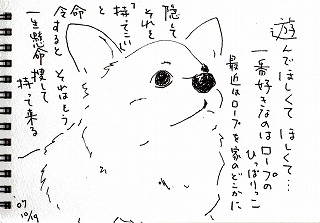 遊んでほしくて ほしくて…
一番好きなのはロープの
ひっぱりっこ
最近はロープを家のどこかに
隠して
それを
「持てこい」
と
命令すると それはもう
一生懸命 捜して
持って来る
07
10/19